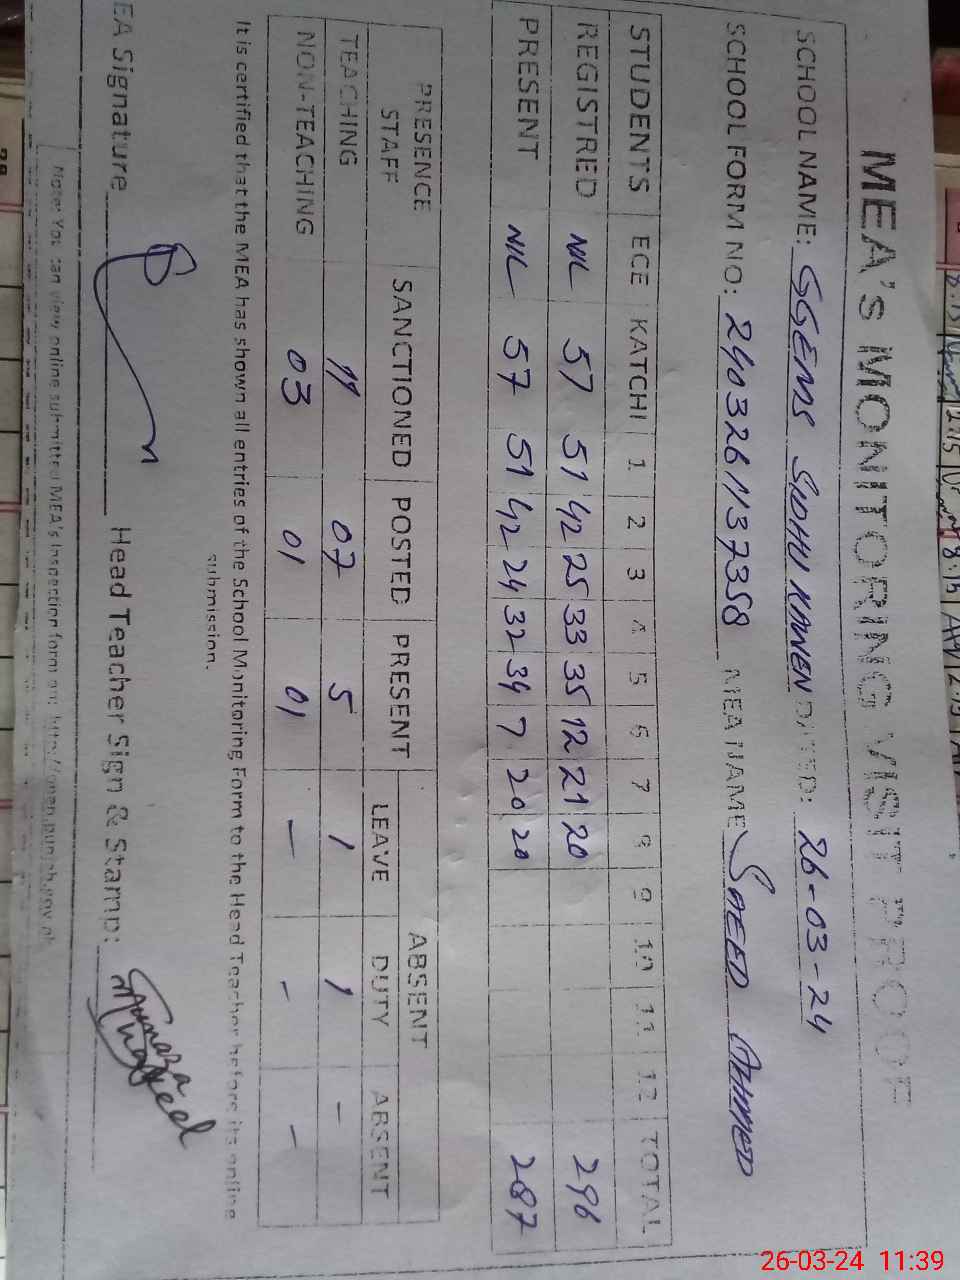 MEA's MONITORING VISIT PROOF
SCHOOL NAME: GGEMS SIDHU KAWEN DATED: 26-03-24
SCHOOL FORM NO: 2403261137358 MEA NAME SAEED AHMED
STUDENTS ECE KATCHI 1 2 3 4 5 6 7 8 9 10 11 12 TOTAL
REGISTRED NIL 57 51 42 25 33 35 12 21 20 296
PRESENT NIL 57 51 42 24 32 34 7 20 20 287
PRESENCE STAFF SANCTIONED POSTED PRESENT ABSENT
LEAVE DUTY ABSENT
TEACHING 11 07 5 1 1 -
NON-TEACHING 03 01 01 - - -
It is certified that the MEA has shown all entries of the School Monitoring Form to the Head Teacher before its online
submission.
EA Signature Head Teacher Sign & Stamp:
Note: You can view online submitted MEA's inspection form on:
26-03-24 11:39